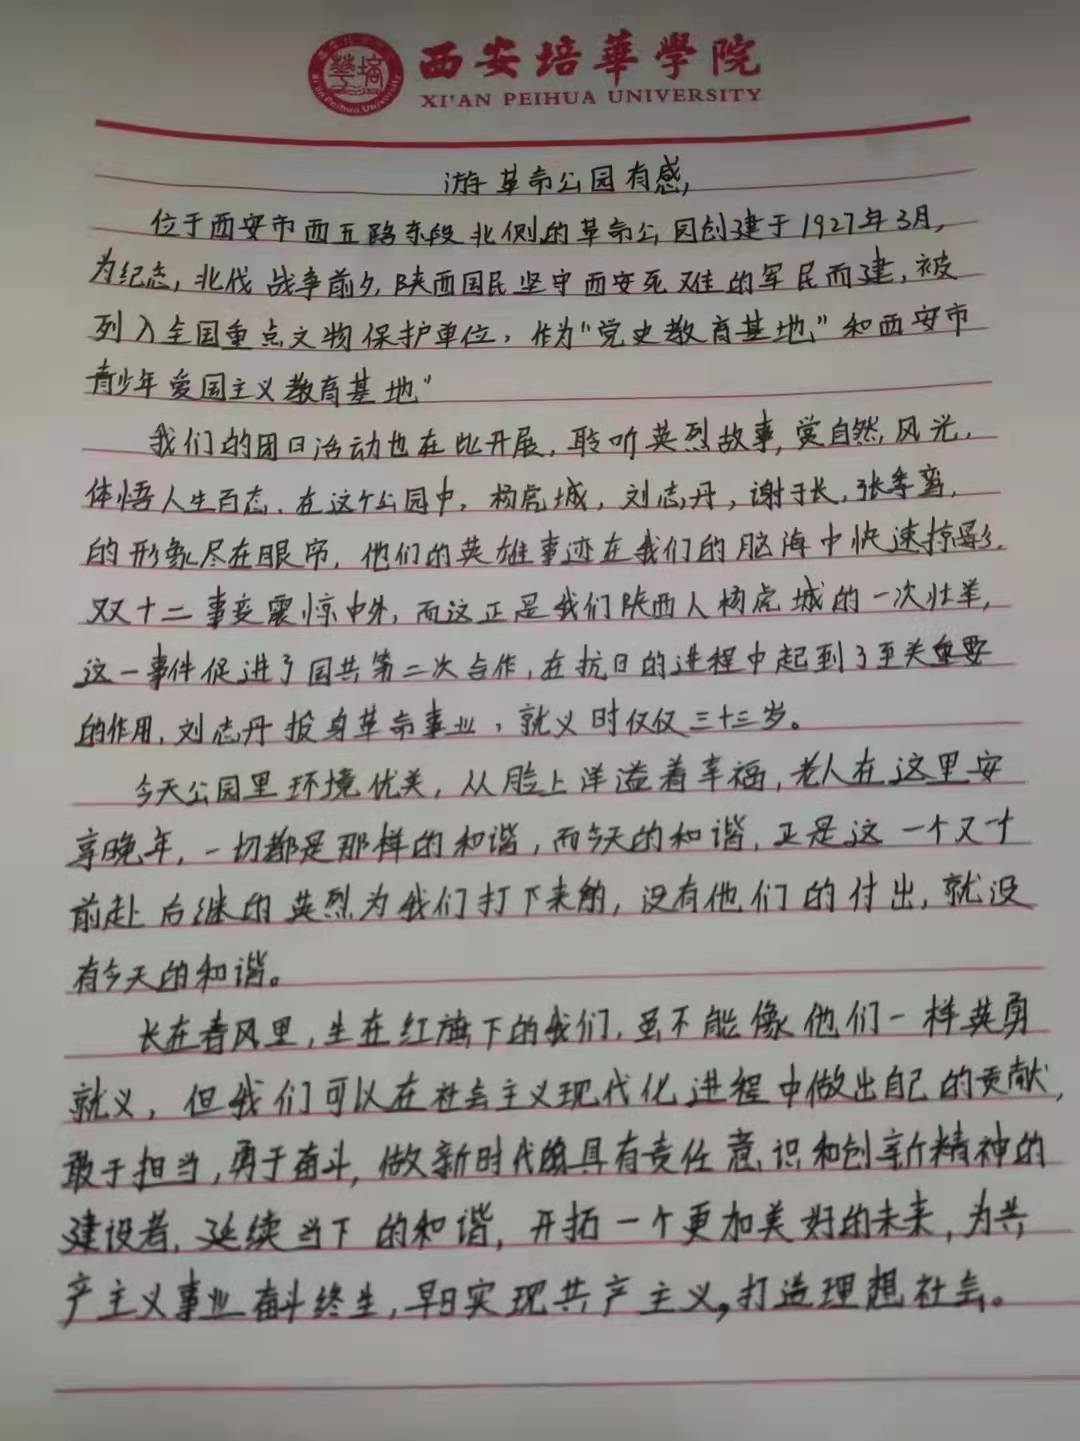 西安培華學院
XI'AN PEIHUA UNIVERSITY
游革命公园有感,
位于西安市西五路东段北侧的革命公园创建于1927年3月,
为纪念,北伐战争前夕陕西国民坚守西安死难的军民而建,被
列入全国重点文物保护单位,作为"党史教育基地"和西安市
青少年爱国主义教育基地"
我们的团日活动也在此开展,聆听英烈故事,赏自然风光,
体悟人生百态.在这个公园中,杨虎城,刘志丹,谢子长,张季鸾,
的形象尽在眼帘,他们的英雄事迹在我们的脑海中快速掠影.
双十二事变震惊中外,而这正是我们陕西人杨虎城的一次壮举,
这一事件促进了国共第二次合作,在抗日的进程中起到了至关重要
的作用,刘志丹投身革命事业,就义时仅仅三十三岁。
今天公园里环境优美,从脸上洋溢着幸福,老人在这里安
享晚年,一切都是那样的和谐,而今天的和谐,正是这一个又一个
前赴后继的英烈为我们打下来的,没有他们的付出,就没
有今天的和谐。
长在春风里,生在红旗下的我们,虽不能像他们一样英勇
就义,但我们可以在社会主义现代化进程中做出自己的贡献,
敢于担当,勇于奋斗,做新时代的具有责任意识和创新精神的
建设者,延续当下的和谐,开拓一个更加美好的未来,为共
产主义事业奋斗终生,早日实现共产主义,打造理想社会。